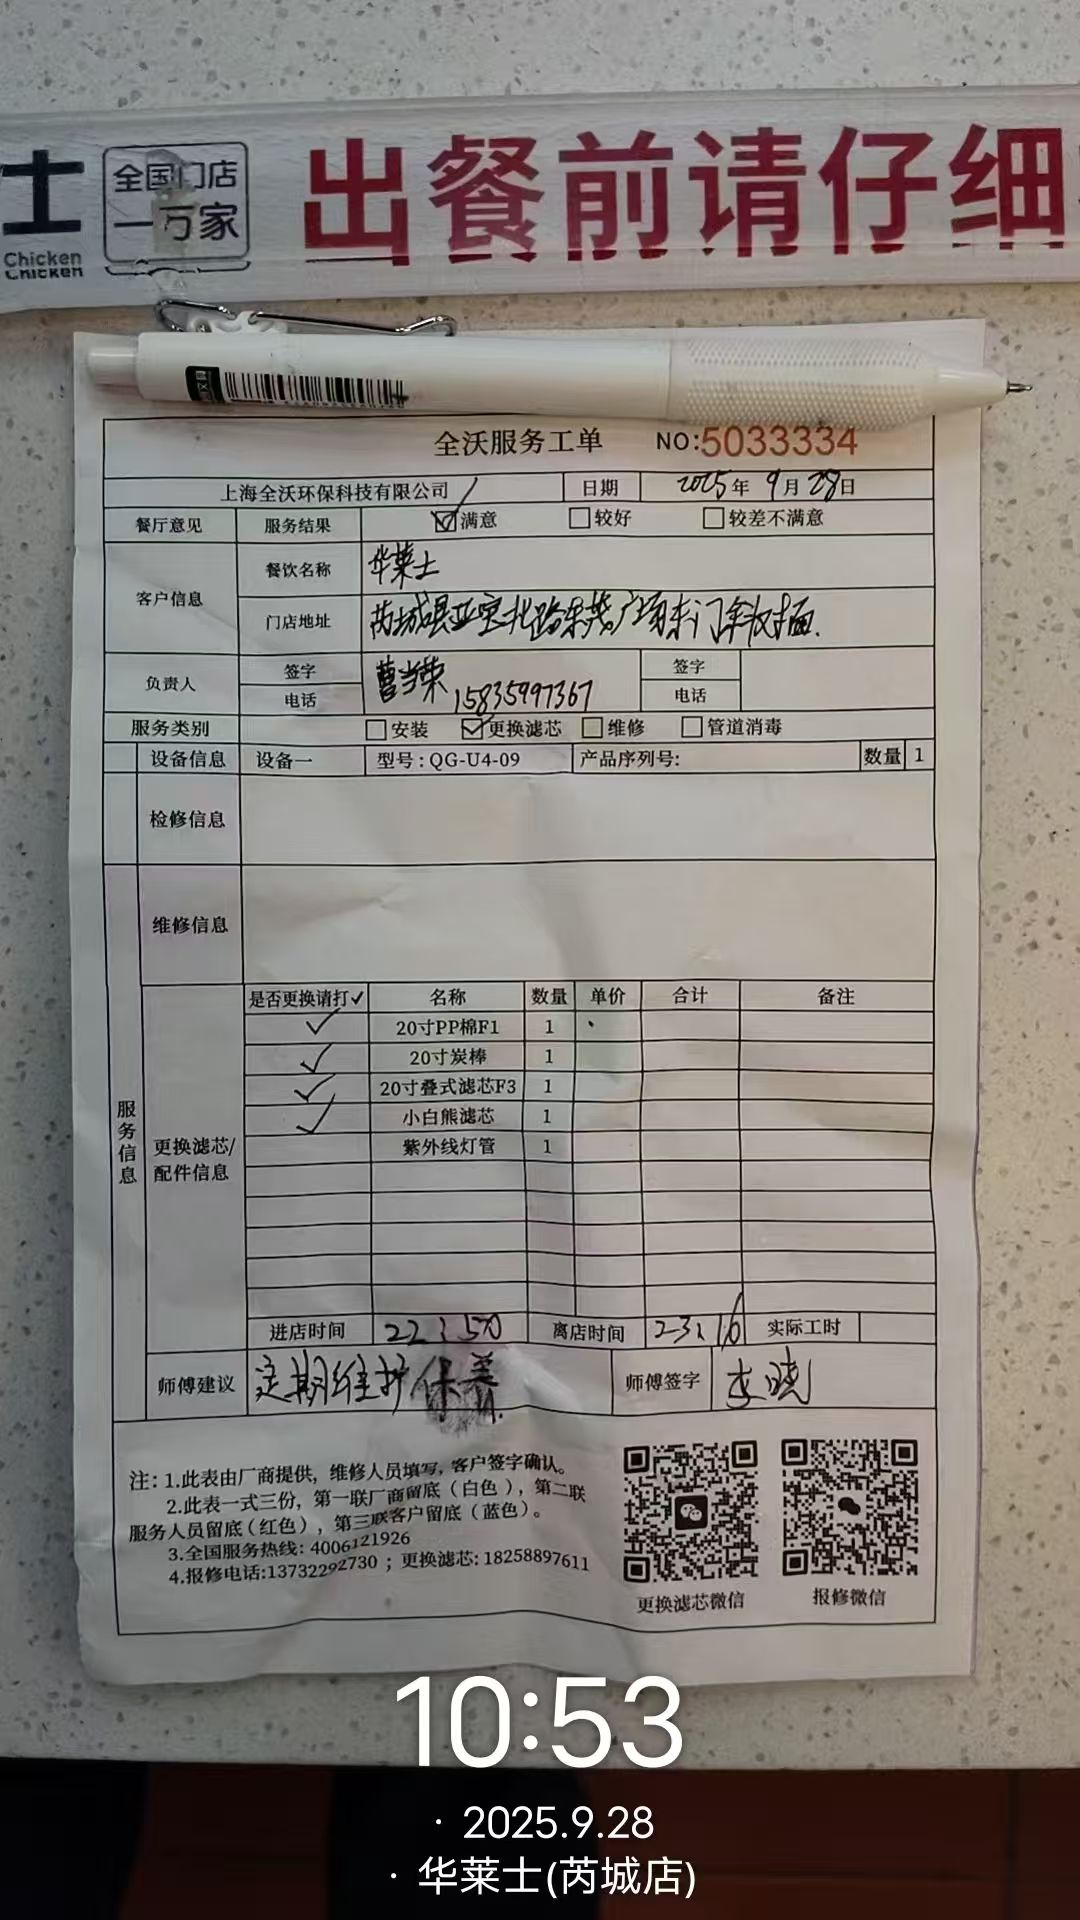 士
全国门店
一万家
Chicken
Chicken
出餐前请仔细
全沃服务工单 NO:5033334
上海全沃环保科技有限公司 日期 2025年 9月28日
餐厅意见 服务结果 满意 较好 较差不满意
客户信息 餐饮名称 华莱士
门店地址 芮城县亚宝北路 广场东门斜对面.
负责人 签字 曹当荣 签字
电话 15835997367 电话
服务类别 安装 更换滤芯 维修 管道消毒
设备信息 设备一 型号:QG-U4-09 产品序列号: 数量 1
检修信息
维修信息
服务信息
更换滤芯/配件信息
是否更换请打✓ 名称 数量 单价 合计 备注
✓ 20寸PP棉F1 1
✓ 20寸炭棒 1
✓ 20寸叠式滤芯F3 1
✓ 小白熊滤芯 1
紫外线灯管 1
进店时间 22:50 离店时间 23:16 实际工时
师傅建议 定期维护保养. 师傅签字 李晓
注: 1.此表由厂商提供, 维修人员填写, 客户签字确认。
2.此表一式三份, 第一联厂商留底 (白色), 第二联
服务人员留底 (红色), 第三联客户留底 (蓝色)。
3.全国服务热线: 4006121926
4.报修电话:13732292730 ; 更换滤芯: 18258897611
更换滤芯微信 报修微信
10:53
· 2025.9.28
· 华莱士(芮城店)